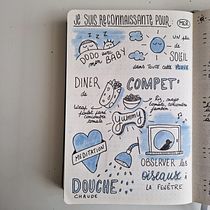 JE SUIS RECONNAISSANTE POUR...
MER
DODO avec
mon BABY
UN peu
de
SOLEIL
dans toute cette
DINER
de
COMPET'
YUMMY
MÉDITATION
OBSERVER les
oiseaux à
LA FENÊTRE
DOUCHE
CHAUDE